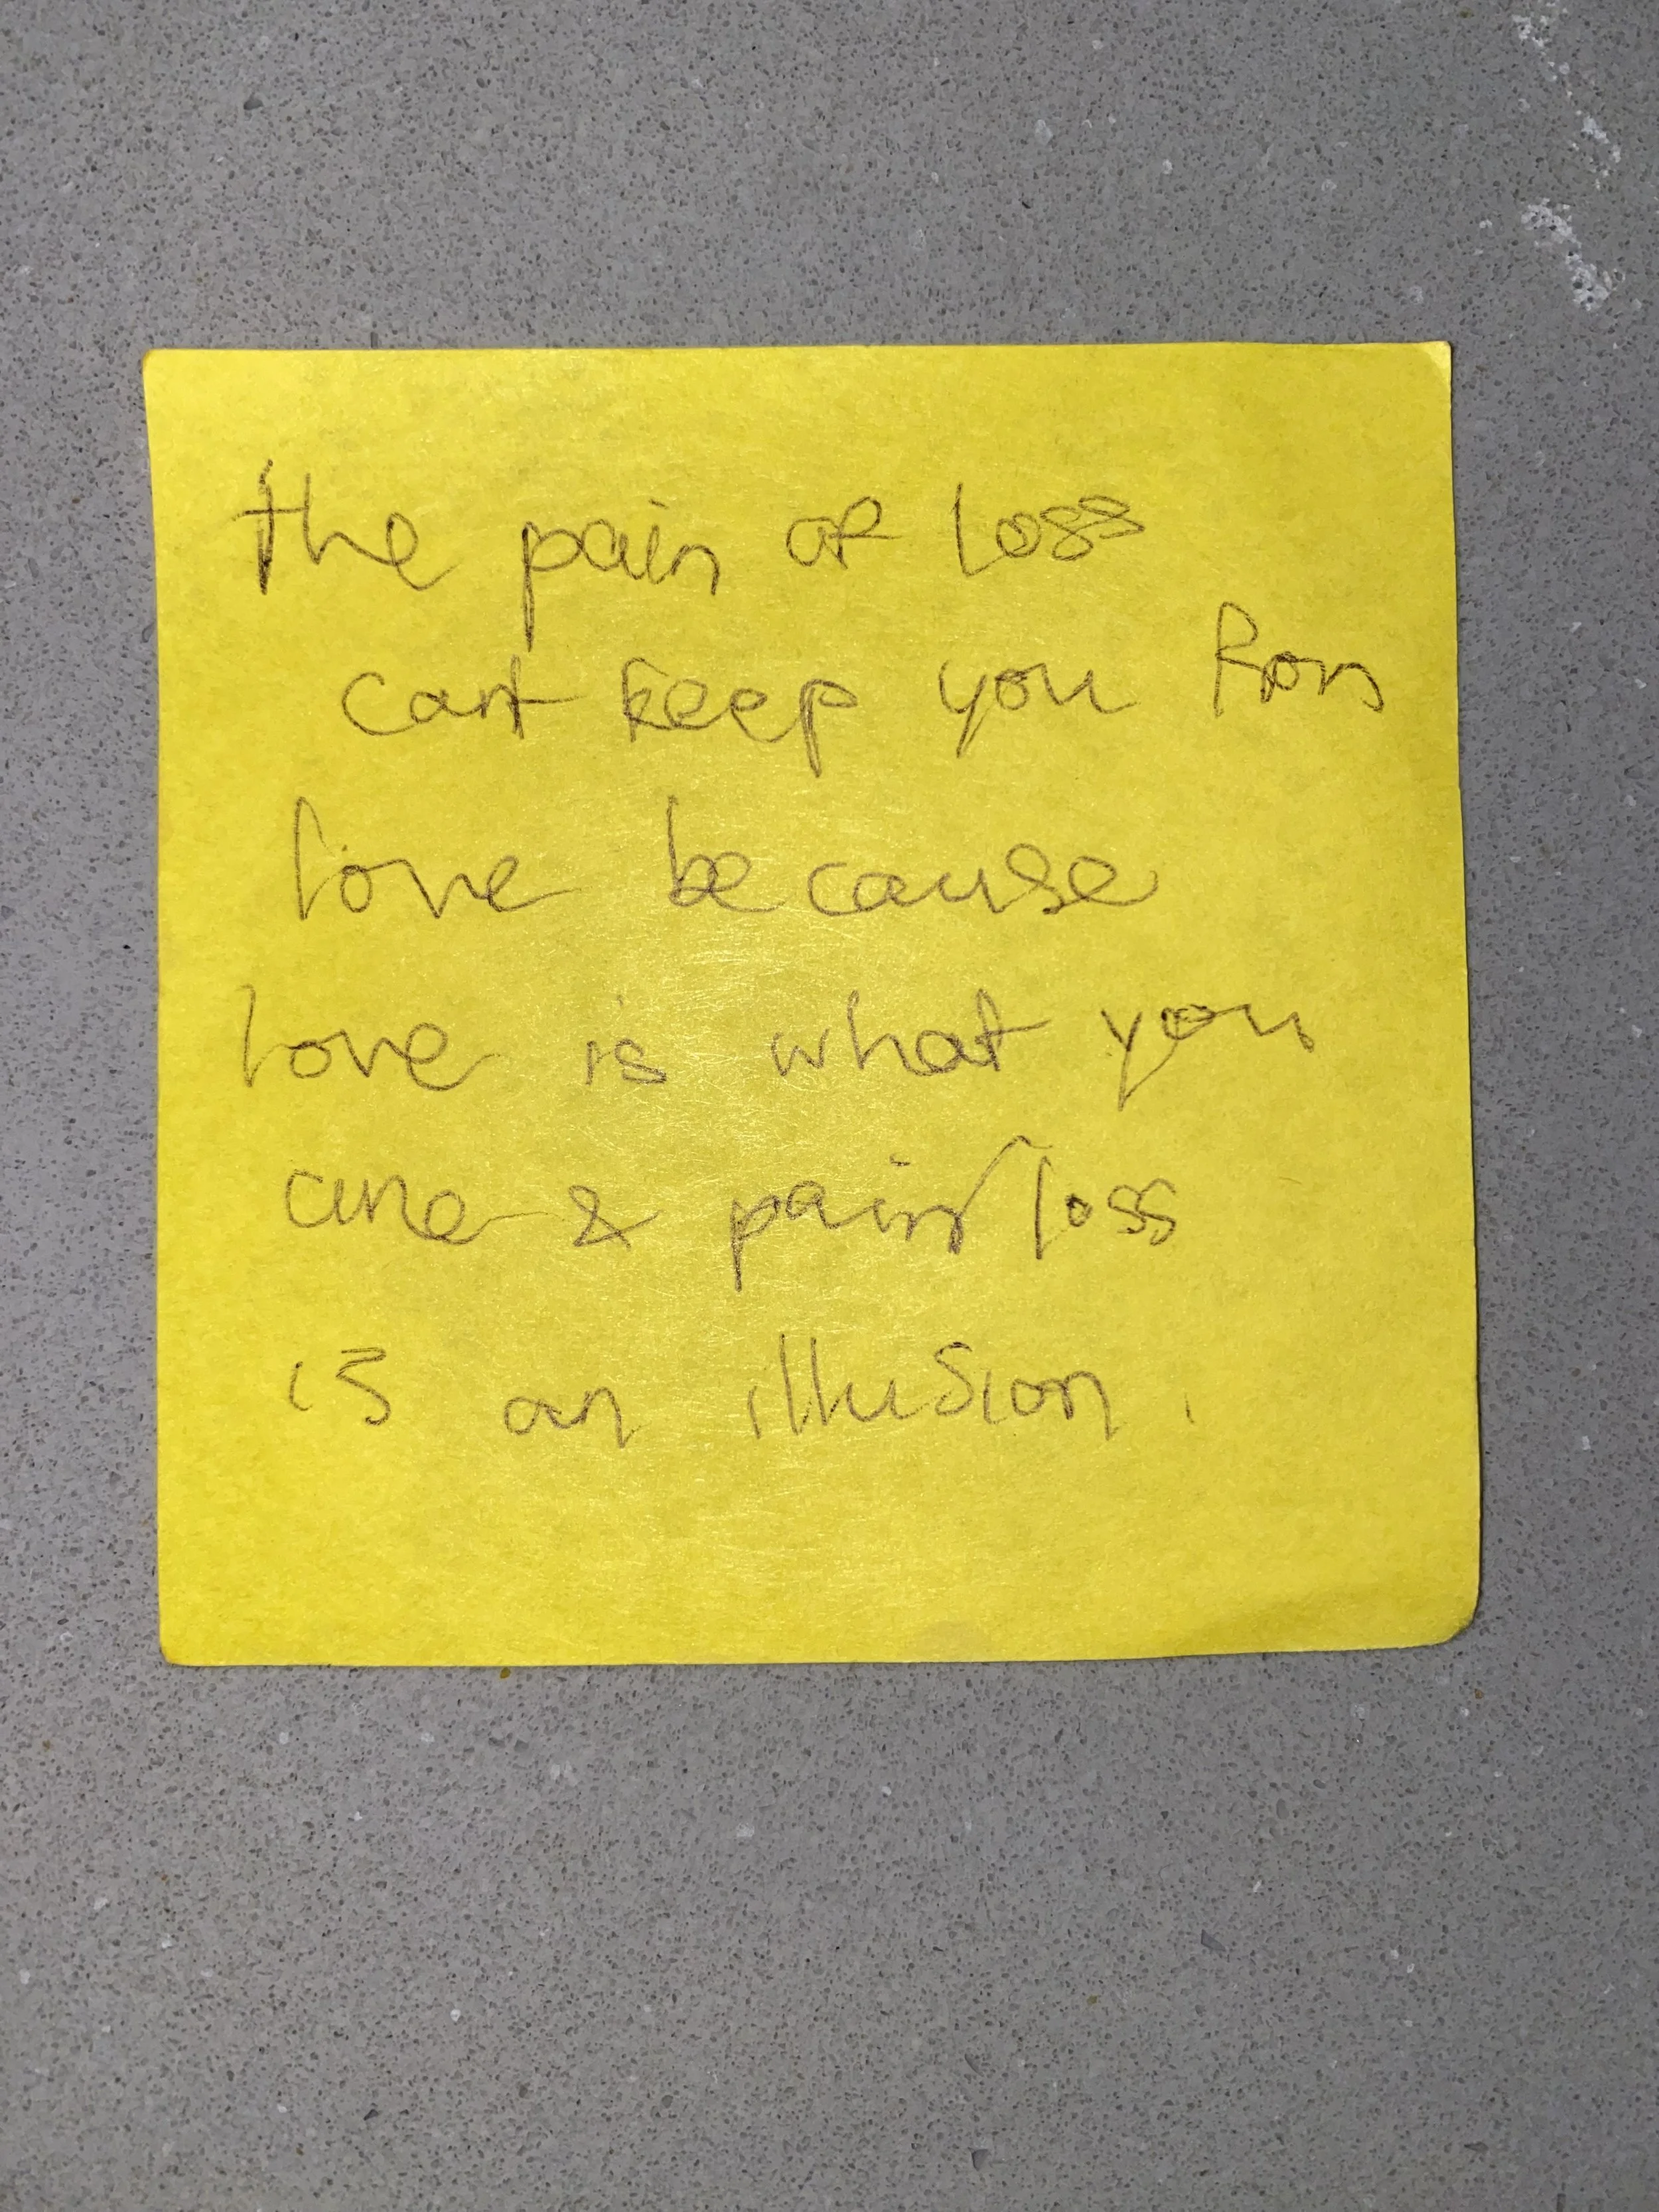 the pain of loss
cant keep you from
love because
love is what you
are & pain/loss
is an illusion.